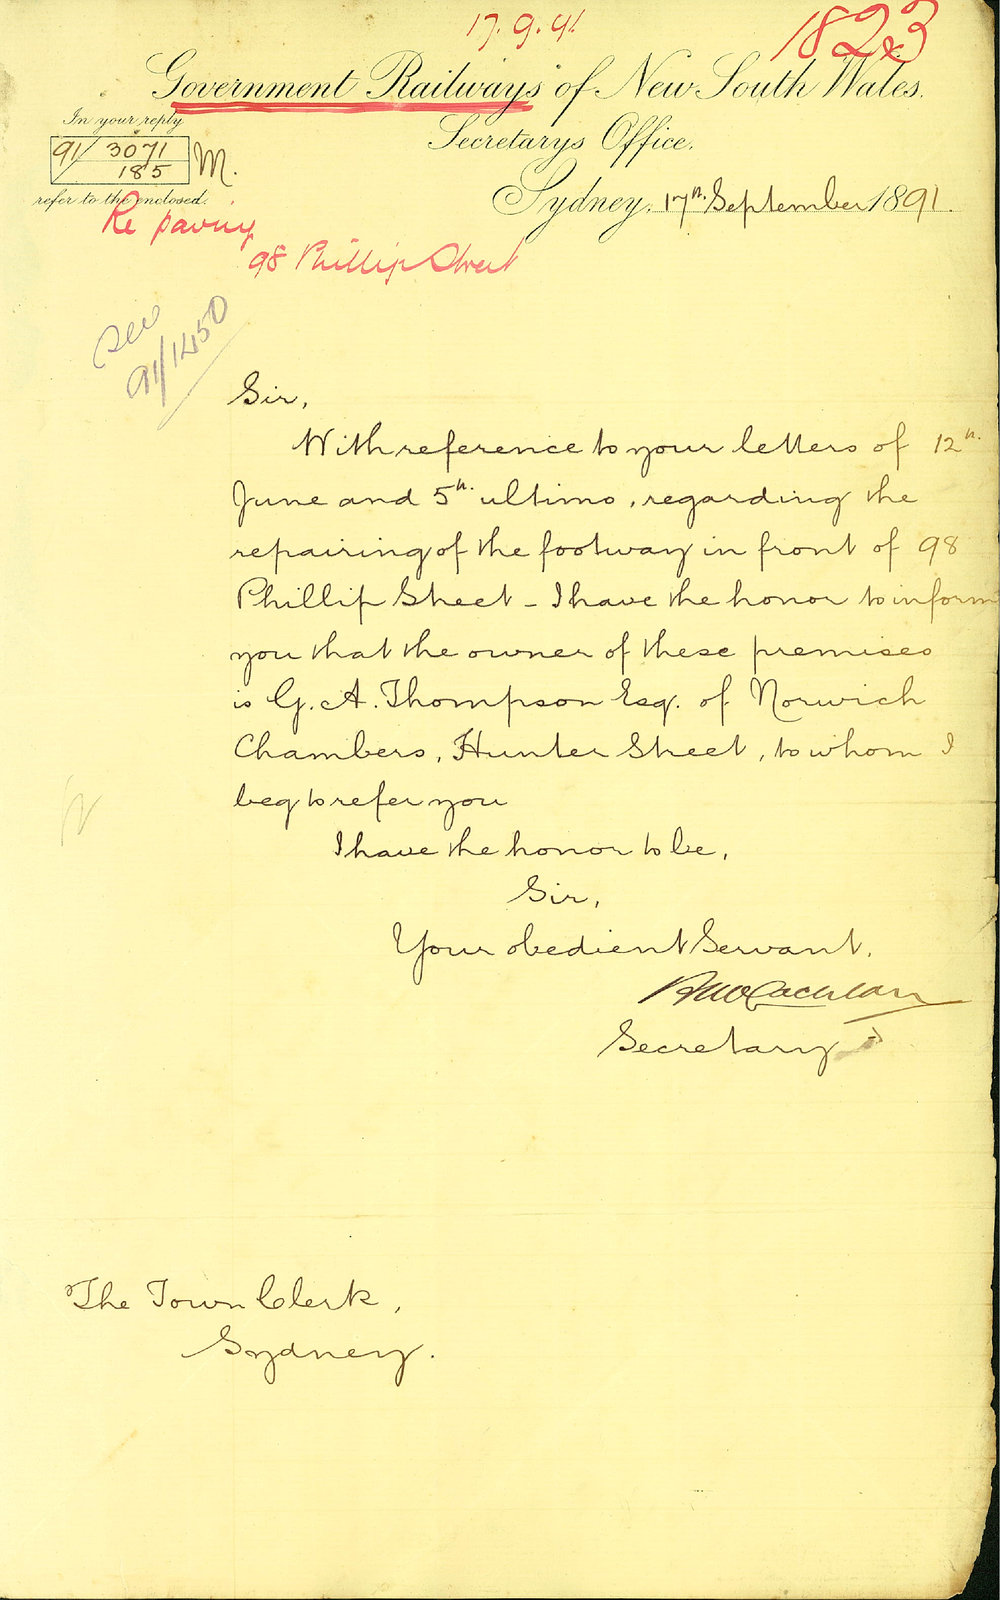 17.9.91
1823
Government Railways of New South Wales.
In your reply
Secretarys Office.
91/3071
185 M.
refer to the enclosed.
Sydney, 17th. September 1891.
Re paving
98 Phillip Street
See
91/1450
Sir,
With reference to your letters of 12th.
June and 5th. ultimo, regarding the
repairing of the footway in front of 98
Phillip Street - I have the honor to inform
you that the owner of these premises
is G. A. Thompson Esq. of Norwich
Chambers, Hunter Street, to whom I
beg to refer you
I have the honor to be,
Sir,
Your obedient Servant.
McLachlan
Secretary
The Town Clerk,
Sydney.